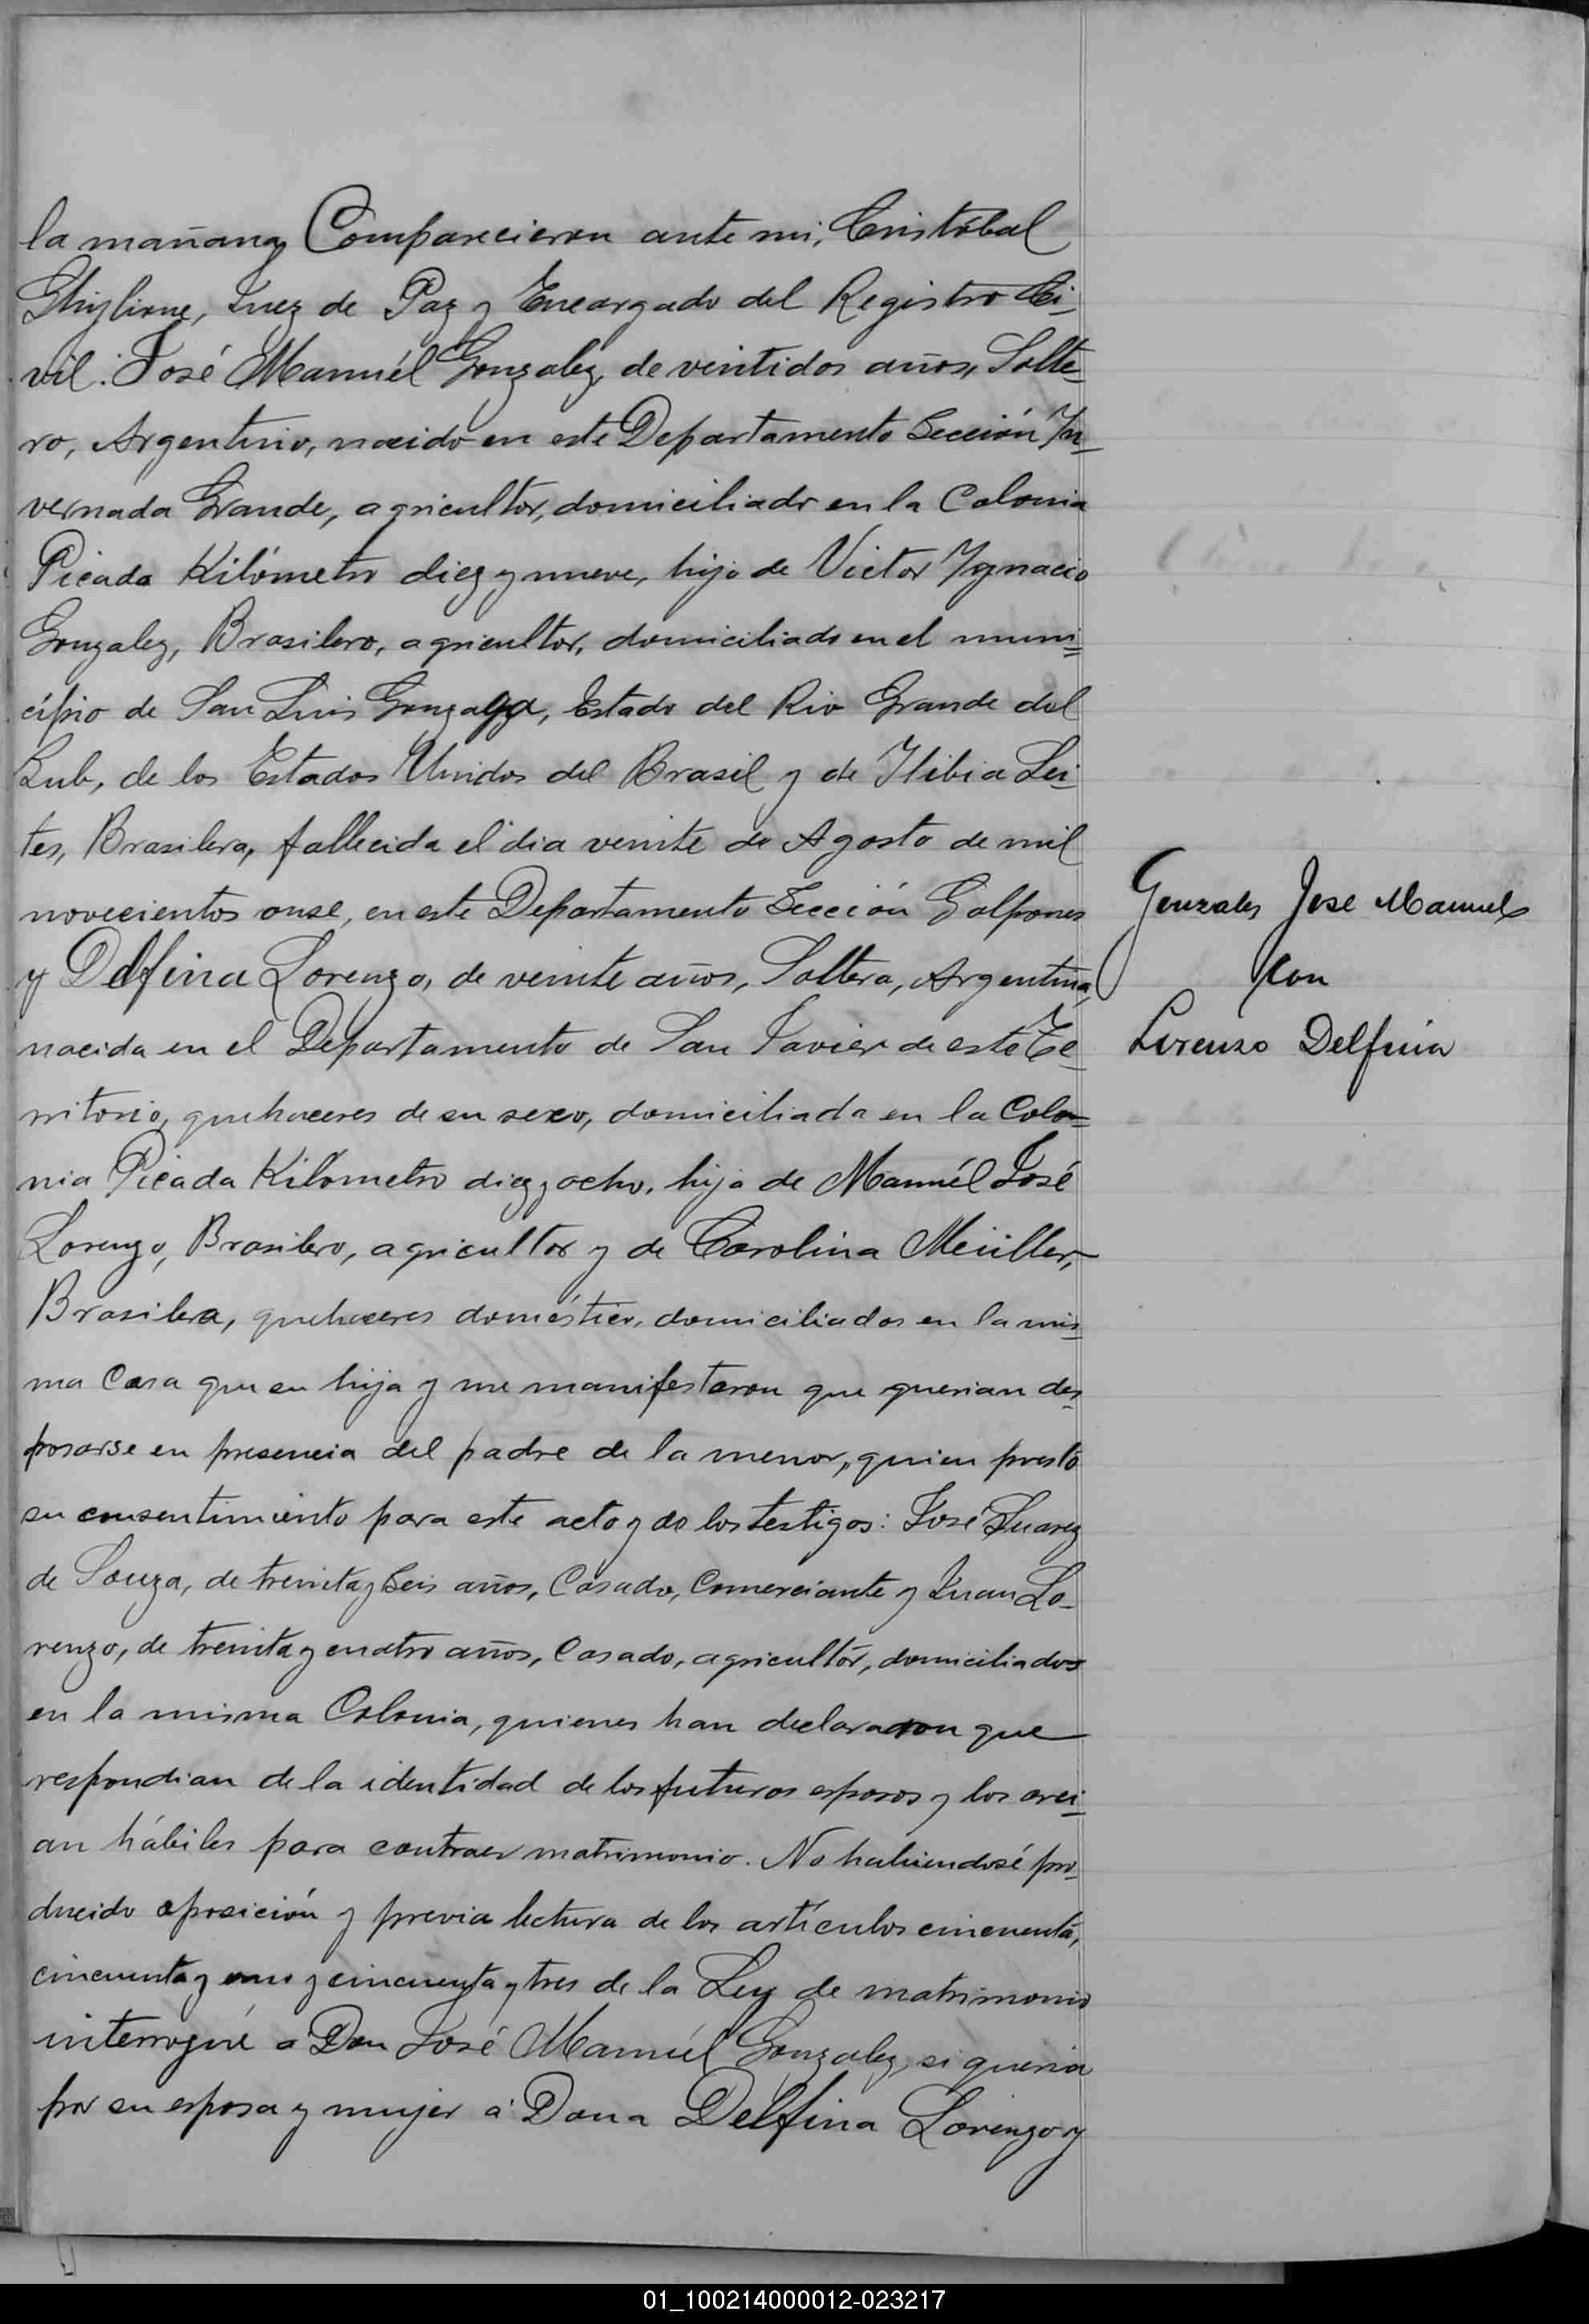 la mañana, Comparecieron ante mi, Cristóbal
Ghiglione, Juez de Paz y Encargado del Registro Ci-
vil: José Manuél Gonzalez, de veintidos años, Solte-
ro, Argentino, nacido en este Departamento Sección In-
vernada Grande, agricultor, domiciliado en la Colonia
Picada Kilómetro diez y nueve, hijo de Victor Ygnacio
Gonzalez, Brasilero, agricultor, domiciliado en el muni=
cípio de San Luis Gonzaga, Estado del Rio Grande del
Sub, de los Estados Unidos del Brasil y de Lei-
tes, Brasilera, fallecida el dia veinte de Agosto de mil
novecientos onse, en este Departamento Sección Galpones
y Delfina Lorenzo, de veinte años, Soltera, Argentina,
nacida en el Departamento de San Javier de este Te-
rritorio, quehaceres de su sexo, domiciliada en la Colo=
nia Picada Kilómetro diez y ocho, hija de Manuél José
Lorenzo, Brasilero, agricultor y de Carolina Meüller,
Brasilera, quehaceres doméstico, domiciliados en la mis-
ma Casa que su hija y me manifestaron que querian des-
posarse en presencia del padre de la menor, quien prestó
su consentimiento para este acto y de los testigos: José Suarez
de Souza, de treinta y seis años, Casado, Comerciante y Juan Lo-
renzo, de treinta y cuatro años, Casado, agricultór, domiciliados
en la misma Colonia, quienes han declararon que
respondian de la identidad de los futuros esposos y los crei-
an hábiles para contraer matrimonio. No habiendosé pro-
ducido oposición y previa lectura de los artículos cincuenta,
cincuenta y uno y cincuenta y tres de la Ley de matrimonio
interrogué a Don José Manuél Gonzalez, si queria
por su esposa y mujer a Dona Delfina Lorenzo y
Gonzales Jose Manuel
con
Lorenzo Delfina
01_100214000012-023217